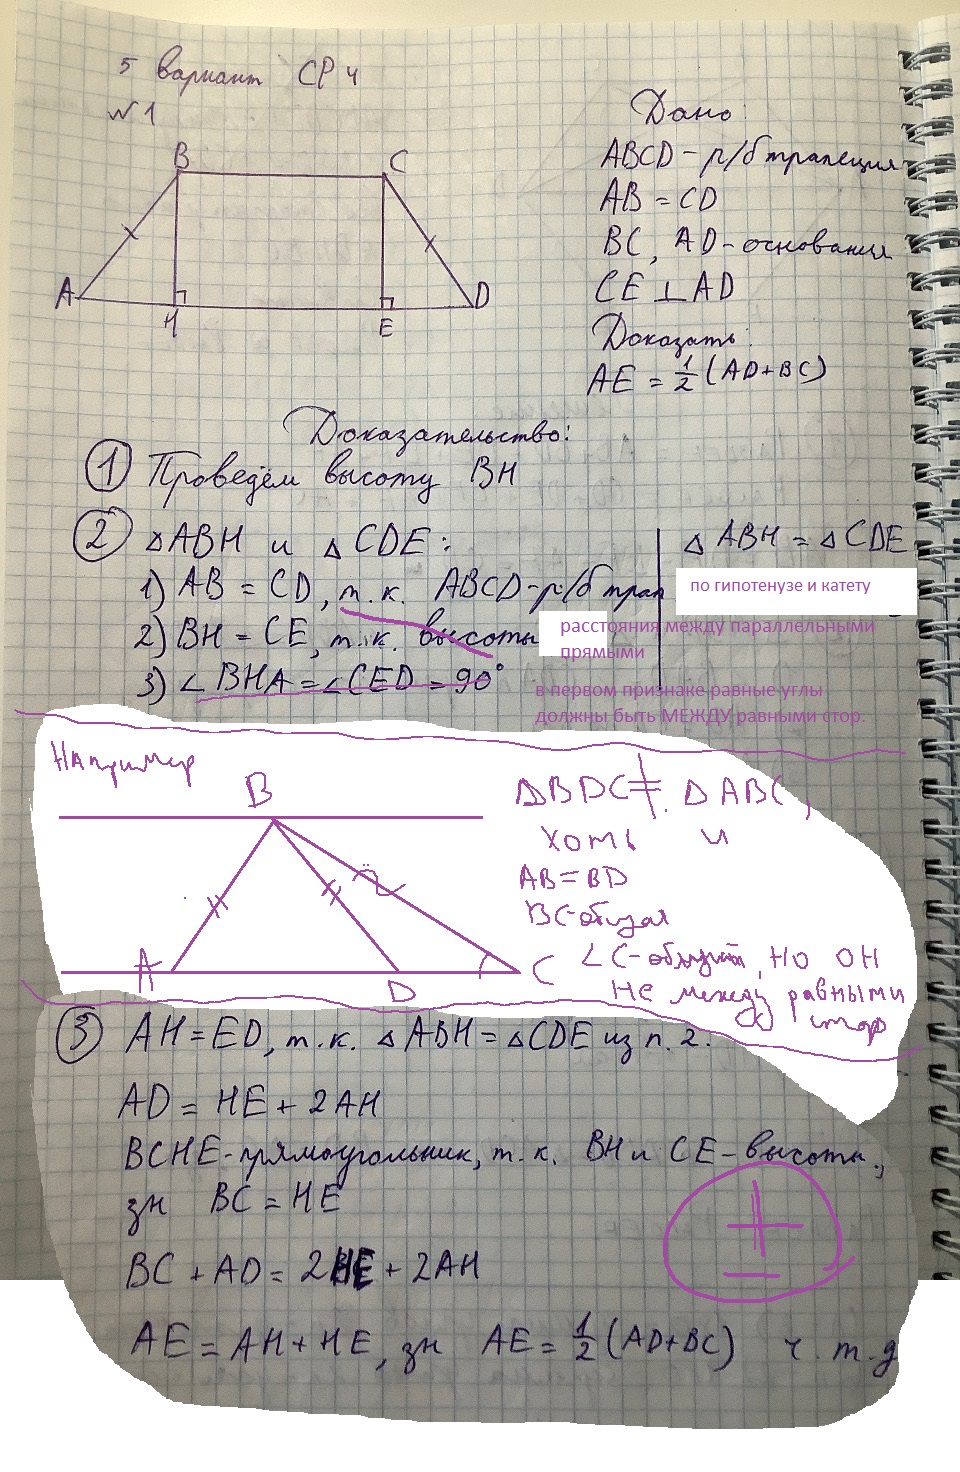 5 вариант СР 4
№1
B
C
A
H
E
D
Дано:
ABCD - р/б трапеция
AB = CD
BC, AD - основания
CE ⊥ AD
Доказать:
AE = 1/2 (AD+BC)
Доказательство:
① Проведём высоту BH
② △ABH и △CDE:
1) AB = CD, т.к. ABCD - р/б трап
2) BH = CE, т.к. высоты
3) ∠BHA = ∠CED = 90°
△ABH = △CDE
по гипотенузе и катету
расстояния между параллельными
прямыми
в первом признаке равные углы
должны быть МЕЖДУ равными стор.
Например
B
A
D
C
△BDC ≠ △ABC,
хоть и
AB = BD
BC - общая
∠C - общий, но он
не между равными
стор
③ AH = ED, т.к. △ABH = △CDE из п. 2.
AD = HE + 2AH
BCHE - прямоугольник, т.к. BH и CE - высоты,
зн BC = HE
BC + AD = 2HE + 2AH
AE = AH + HE, зн AE = 1/2 (AD+BC) ч.т.д
±